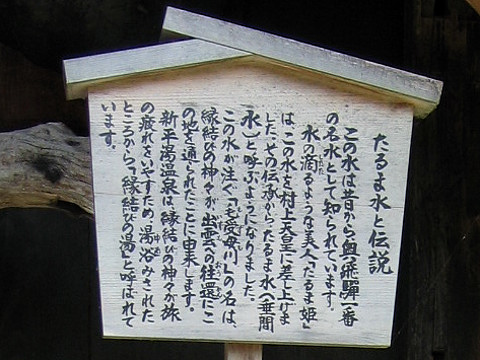 たるま水と伝説
この水は昔から奥飛騨一番
の名水として知られています。
水の滴るような美人「たるま姫」
は、この水を村上天皇に差し上げま
した。その伝承からたるま水（垂間
水）と呼ぶようになりました。
この水が注ぐ「毛受母川」の名は、
縁結びの神々が出雲への往還にこ
の地を通られたことに由来します。
新平湯温泉は縁結びの神々が旅
の疲れをいやすため湯浴みされた
ところから「縁結びの湯」と呼ばれて
います。